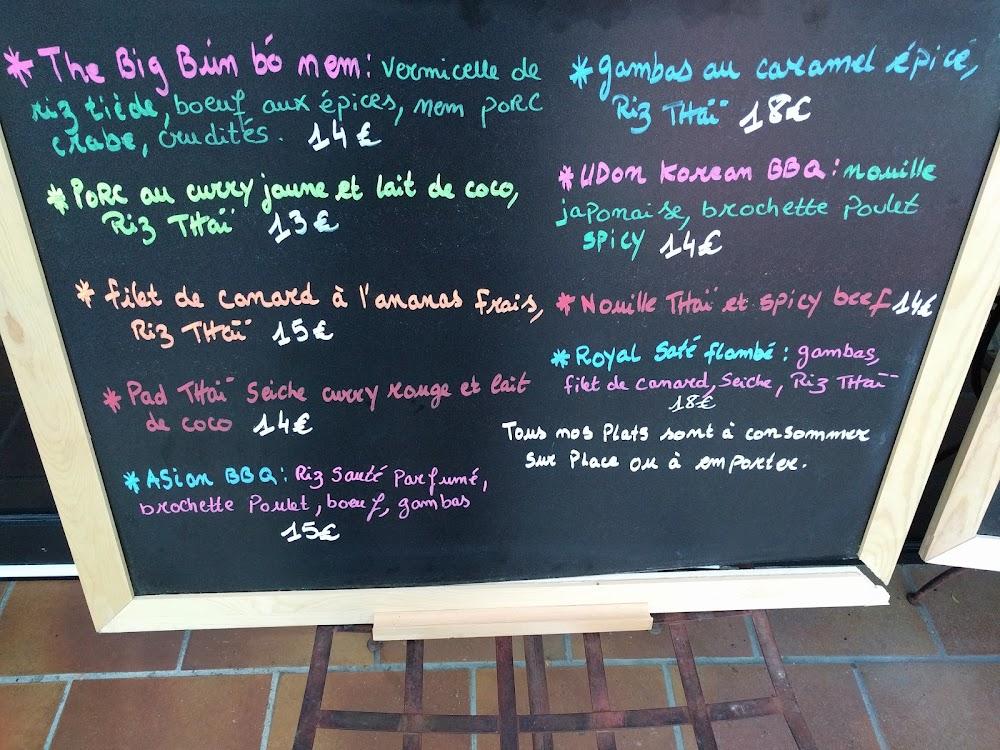 * The Big Bún bó nem: vermicelle de
riz tiède, boeuf aux épices, nem porc
crabe, crudités. 14€
* Porc au curry jaune et lait de coco,
Riz THaï 13€
* filet de canard à l'ananas frais,
Riz THaï 15€
* Pad THaï Seiche curry rouge et lait
de coco 14€
* ASian BBQ: Riz Sauté Parfumé,
brochette Poulet, boeuf, gambas
15€
* gambas au caramel épicé,
Riz THaï 18€
* UDon Korean BBQ: nouille
japonaise, brochette Poulet
SPicy 14€
* Nouille THaï et SPicy beef 14€
* Royal Saté flambé: gambas,
filet de canard, Seiche, Riz THaï
18€
Tous nos Plats sont à consommer
sur Place ou à emporter.